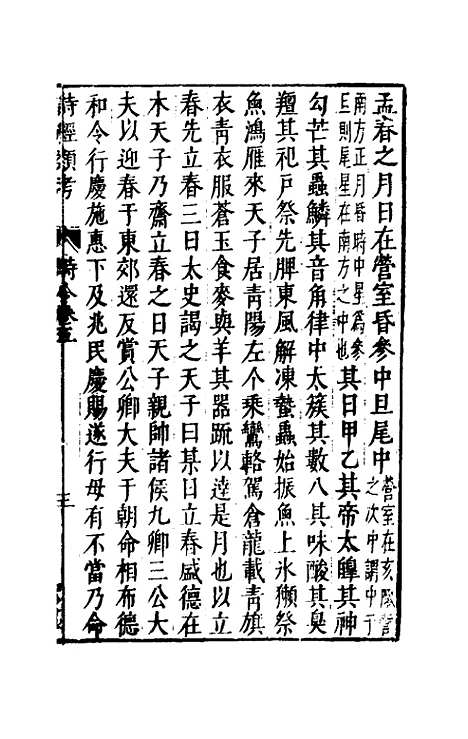 孟春之月日在營室昏參中旦尾中
營室在亥訾
之次中謂中于
南方正月昏時中星為參
旦則尾星在南方之中也
其日甲乙其帝太皥其神
勾芒其蟲鱗其音角律中太簇其數八其味酸其臭
羶其祀戶祭先脾東風解凍蟄蟲始振魚上氷獺祭
魚鴻雁來天子居青陽左个乘鸞輅駕倉龍載青旗
衣青衣服蒼玉食麥與羊其器疏以達是月也以立
春先立春三日太史謁之天子曰某日立春盛德在
木天子乃齋立春之日天子親帥諸侯九卿三公大
夫以迎春于東郊還反賞公卿大夫于朝命相布德
和令行慶施惠下及兆民慶賜遂行毋有不當乃命
詩經類考
時令卷五
三